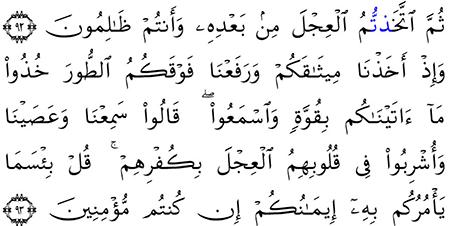 ثُمَّ ٱتَّخَذْتُمُ ٱلْعِجْلَ مِنۢ بَعْدِهِۦ وَأَنتُمْ ظَـٰلِمُونَ ﴿٩٢﴾
وَإِذْ أَخَذْنَا مِيثَـٰقَكُمْ وَرَفَعْنَا فَوْقَكُمُ ٱلطُّورَ خُذُوا۟
مَآ ءَاتَيْنَـٰكُم بِقُوَّةٍ وَٱسْمَعُوا۟ ۖ قَالُوا۟ سَمِعْنَا وَعَصَيْنَا
وَأُشْرِبُوا۟ فِى قُلُوبِهِمُ ٱلْعِجْلَ بِكُفْرِهِمْ ۚ قُلْ بِئْسَمَا
يَأْمُرُكُم بِهِۦٓ إِيمَـٰنُكُمْ إِن كُنتُم مُّؤْمِنِينَ ﴿٩٣﴾